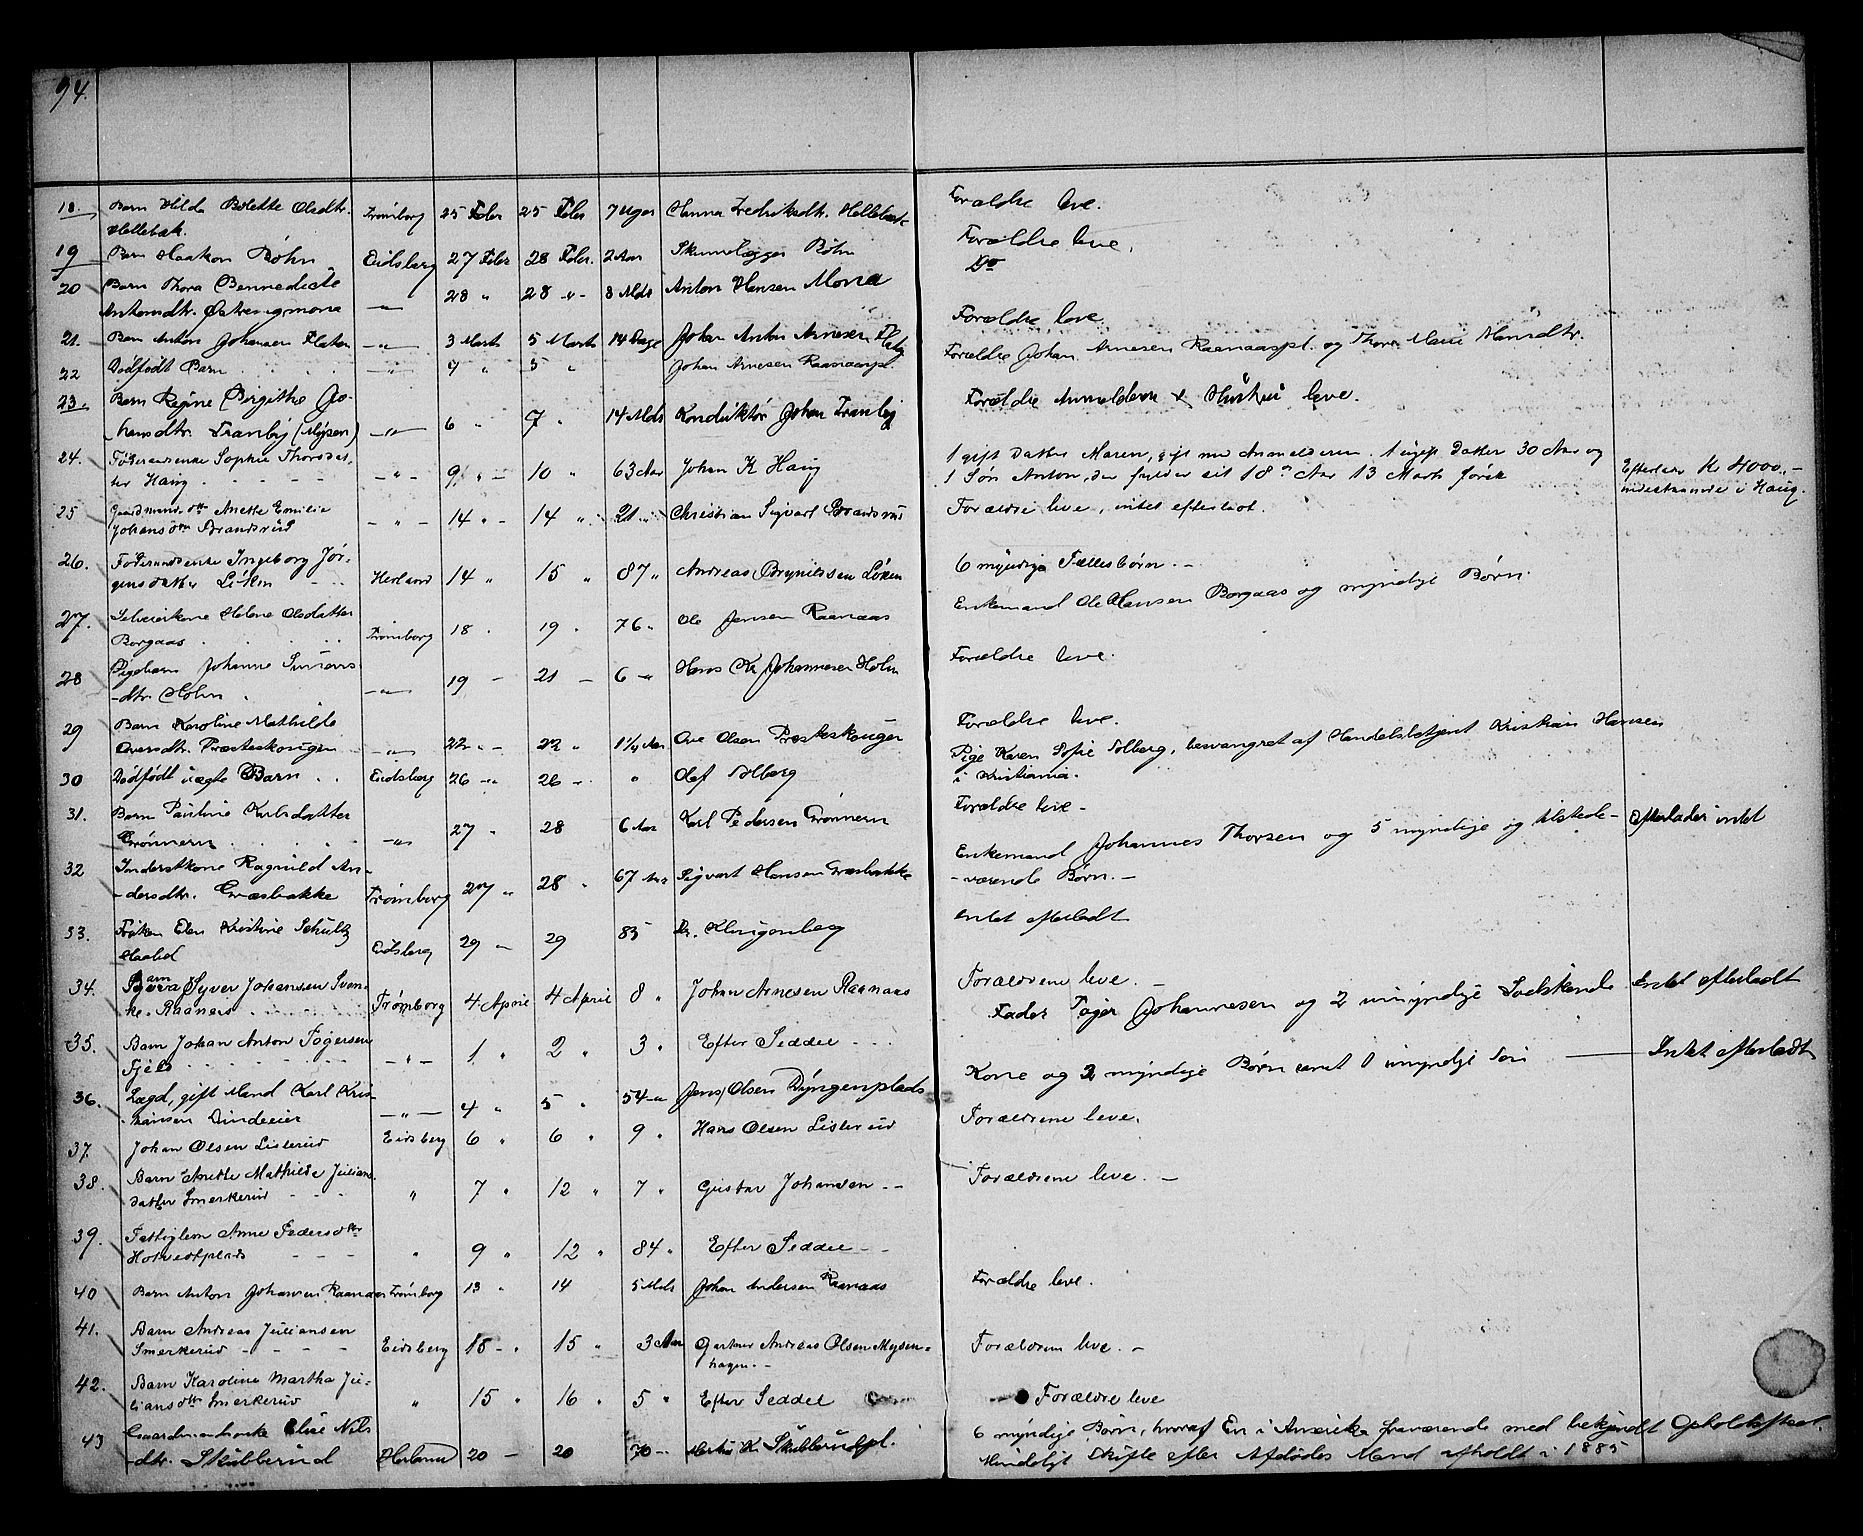 94.
18. Barn Hilda Bolette Olsdtr. Trømborg 25 Febr 25 Febr 7 Uger Hanna Fredriksdtr. Hellebæk Forældre leve.
Hellebæk.
19 Barn Haakon Bøhn Eidsberg 27 Febr 28 Febr. 2 Aar Bøhn Forældre leve.
20 Barn Thora Bennedicte —„— 28 „ 28 -„- 8 Mdr Anton Hansen Mona Do
Antonsdtr. Østrengmona
21. Barn Anton Johansen —„— 3 Marts 5 Marts 14 Dage Johan Anton Arnesen Forældre leve.
22 Dødfødt Barn . . . —„— 4 „ 5 „ Johan Arnesen Raanaaspl. Forældre Johan Arnesen Raanaaspl. og Thora Marie Hansdtr.
23. Barn Regine Birgithe Jo-
hansdtr. Tranby (Mysen) —„— 6 „ 7 „ 14 Mdr Konduktør Johan Tranby Forældre Anmelderen & Hustru leve.
24. Føderaadsenke Sophie Thorsdat,
ter Haug . - - - -„- 9 „ - 10 „ 63 Aar Johan K Haug 1 gift Datter Maren, gift med Anmelderen. 1 ugift Datter 30 Aar og
1 Søn Anton, der fylder sit 18de Aar 13 Marts først Efterlader Kr 4000.-
indestaaende i Haug.
25 Gaardmandsdtr Anette Emilie
Johansdtr Brandsrud -„- 14 „ - 14 „ 21 „ Christian Sigvart Brandsrud Forældre leve, intet efterladt.
26. Føderaadsenke Ingeborg Jør-
gensdatter Løken - - Herland 14 „ 15 „ 87 „ Andreas Brynildsen Løken 6 myndige Fællesbørn. -
27. Selveierkone Helene Olsdatter
Borgaas . . . . Trømborg 18 . 19 . 76 „ Ole Jensen Raanaas Enkemand Ole Hansen Borgaas og myndige Børn.
28 Pigebarn Johanne Simens
-dtr. Holm . —„— 19 - 21 - 6 -„ Hans Kr Johannesen Holm Forældre leve.
29 Barn Karoline Mathilde
Oversdtr. Præsteskougen —„— 22 „ - 22 „ 1¼ Aar Ove Olsen Præsteskougen Forældre leve.
30 Dødfødt uægte Barn . . Eidsberg 26 -„ 26 - „ Olaf Solberg Pige Karen Sofie Solberg, besvangret af Handelsbetjent Kristian Hansen
i Kristiania.
31. Barn Pauline Karlsdatter
Grønnern . . . . —„— 27 „ 28 6 Aar Karl Pedersen Grønnern Forældre leve -
32 Inderstkone Ragnild An-
-dersdtr. Græsbakke Trømborg 27 „ 28 „ 67 Aar Sigvart Hansen Græsbakke Enkemand Johannes Thorsen og 5 myndige og tilstede-
-værende Børn. - Efterlader intet
33. Frøken Elen Kristine Schultz
Eidsberg 29 - 29 85 Dr. Klingenberg Intet efterladt
34. Barn Syver Johansen Sven-
ke. Raanæs . . . Trømborg 4 April 4 April 8 „ Johan Arnesen Raanaas Forældrene leve. -
35. Barn Johan Anton Tøgersen
Fjeld . . . . -„- 1 „ 2 „ 3 „ Efter Seddel - - . Fader Tøger Johannesen og 2 umyndige Sødskende Intet efterladt
36. Lægd, gift Mand Karl Kris-
tiansen -„- 4 „ 5 „ 54 -„ Jens Olsen Dyngenplads Kone og 2 myndige Børn samt 1 umyndig Søn — Intet efterladt
37. Johan Olsen Listerud Eidsberg 6 „ 6 „ 9 „ Hans Olsen Listerud Forældrene leve.
38. Barn Anette Mathilde Julians
datter Smerkerud - - - „ 7 „ 12 „ 7 „ Gustav Johansen - - Forældrene leve. -
39. Fattiglem Anne Pedersdtr
- - - „ 9 „ 12 „ 84 „ Efter Seddel - -
40 Barn Anton Johansen Raanaas Trømborg 13 „ 14 5 Mdr Johan Andersen Raanaas Forældre leve.
41. Barn Andreas Juliansen
Smerkerud - - - - Eidsberg 15 - „ 15 „ 3 Aar Gartner Andreas Olsen Mysen-
hagen. - Forældrene leve. -
42. Barn Karoline Martha Ju-
liansdtr Smerkerud „ 15 „ 16 „ 5 „ Efter Seddel Forældre leve
43 Gaardmandsenke Elise Nils
-dtr. Skubberud Herland 20 - 20 70 - K Skubberudpl. 6 myndige Børn, hvoraf En i Amerika fraværende med bekjendt Opholdssted.
Mindeligt Skifte efter Afdødes Mand afholdt i 1885